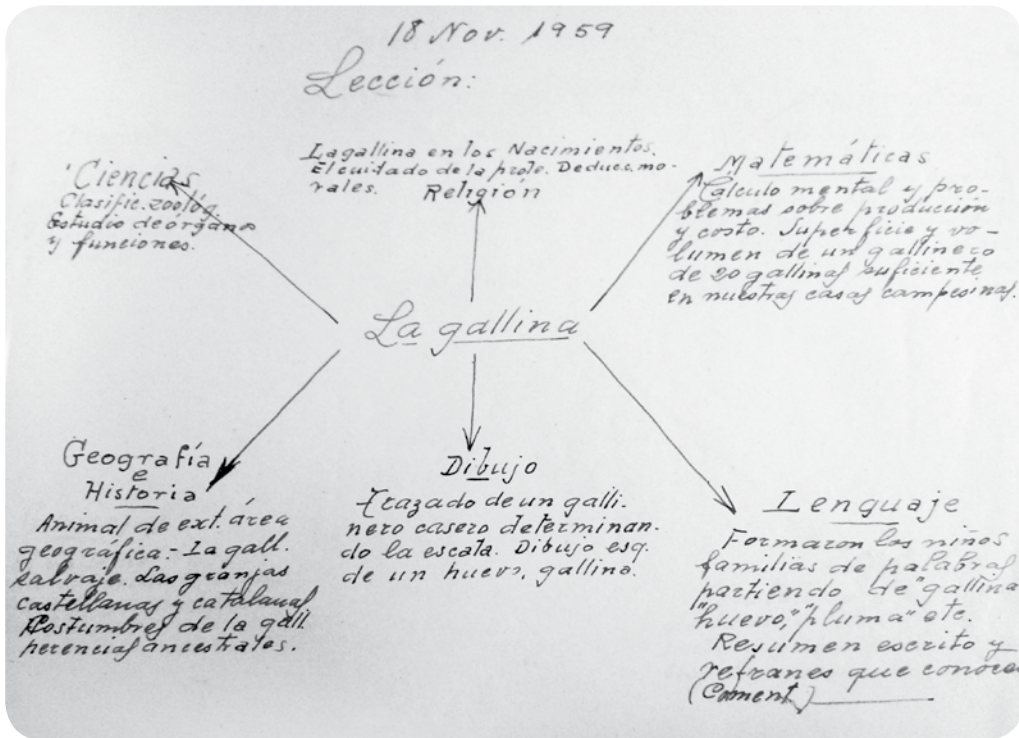 18 Nov. 1959
Lección:
La gallina en los Nacimientos.
El cuidado de la prole. Deducc. mo-
rales.
Religión
Ciencias
Clasific. zoológ.
Estudio de órganos
y funciones.
Matemáticas
Cálculo mental y pro-
blemas sobre producción
y costo. Superficie y vo-
lumen de un gallinero
de 20 gallinas suficiente
en nuestras casas campesinas.
La gallina
Geografía
e
Historia
Animal de ext. área
geográfica.- La gall.
salvaje. Las granjas
castellanas y catalanas
Costumbres de la gall.
herencias ancestrales.
Dibujo
Trazado de un galli-
nero casero determinan-
do la escala. Dibujo esq.
de un huevo, gallina.
Lenguaje
Formaron los niños
familias de palabras
partiendo de "gallina
"huevo", "pluma" etc.
Resumen escrito y
refranes que conoce
(Coment.)